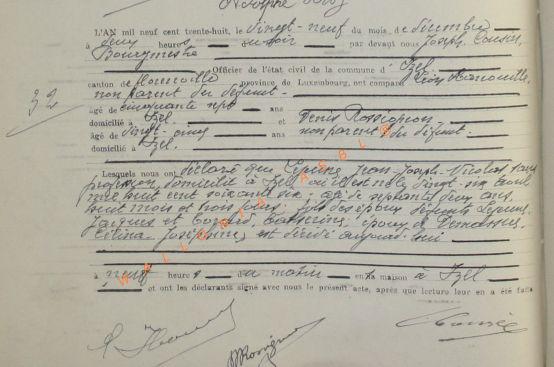 L'AN mil neuf cent trente-huit, le vingt-neuf du mois de décembre
à deux heures du soir par devant nous Joseph
Bourgmestre
Officier de l'état civil de la commune d'Izel
canton de Florenville province de Luxembourg, ont comparu Léon
non parent du défunt
32
âgé de cinquante sept ans et Denis Rossignon
domicilié à Izel
âgé de vingt-cinq ans non parent du défunt.
domicilié à Izel.
Lesquels nous ont déclaré que Jean-Joseph-Nicolas sans
profession, domicilié à Izel où il est né le vingt-six avril
mil huit cent soixante six, âgé de septante deux ans,
huit mois et trois jours, fils des époux défunts
Jacques et Catherine, époux de
Célina Joséphine, est décédé aujourd'hui
à neuf heures du matin en la maison à Izel
et ont les déclarants signé avec nous le présent acte, après que lecture leur en a été faite
WALLONIA ASBL